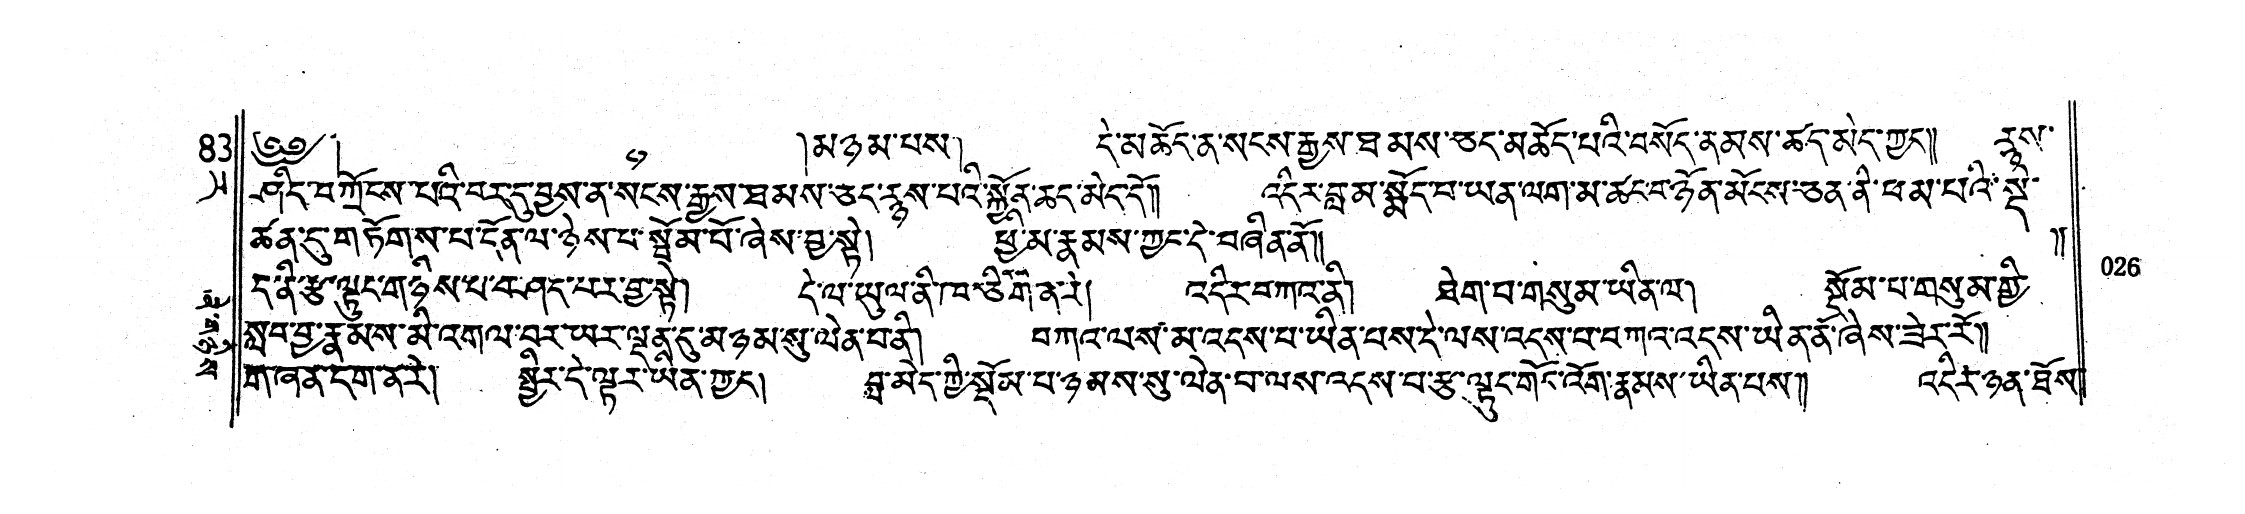 83 ༄༅། །མཉམ་པས། དེ་མཆོད་ན་སངས་རྒྱས་ཐམས་ཅད་མཆོད་པའི་བསོད་ནམས་ཚད་མེད་ཀྱང༎ རྙས་
ཤིང་བཀྲོངས་པའི་བར་དུ་བྱས་ན་སངས་རྒྱས་ཐམས་ཅད་རྙས་པའི་སྐྱོན་ཆད་མེད་དོ༎ འདིར་བླ་མ་སྨོད་པ་ཡན་ལག་མ་ཚང་བ་ཉོན་མོངས་ཅན་ནི་ཕམ་པའི་སྡེ་
ཚན་དུ་གཏོགས་པ་དོན་ལ་ཉེས་པ་སྦོམ་པོ་ཞེས་བྱ་སྟེ། ཕྱི་མ་རྣམས་ཀྱང་དེ་བཞིན་ནོ༎ ༎
ད་ནི་རྩ་ལྟུང་གཉིས་པ་བཤད་པར་བྱ་སྟེ། དེ་ལ་ཡུལ་ནི་ཁ་ཅིག་ན་རེ། འདིར་བཀའ་ནི། ཐེག་པ་གསུམ་ཡིན་ལ། སྡོམ་པ་གསུམ་གྱི་
སླབ་བྱ་རྣམས་མི་འགལ་བར་ཡར་ལྡན་དུ་མཉམ་སུ་ལེན་པ་ནི། བཀའ་ལས་མ་འདས་པ་ཡིན་པས་དེ་ལས་འདས་པ་བཀའ་འདས་ཡིན་ནོ་ཞེས་ཟེར་རོ༎
གཞན་དག་ན་རེ། སྤྱིར་དེ་ལྟར་ཡིན་ཀྱང། བླ་མེད་ཀྱི་སྡོམ་པ་ཉམས་སུ་ལེན་པ་ལས་འདས་པ་རྩ་ལྟུང་གོང་འོག་རྣམས་ཡིན་པས༎ འདིར་ཉན་ཐོས
026